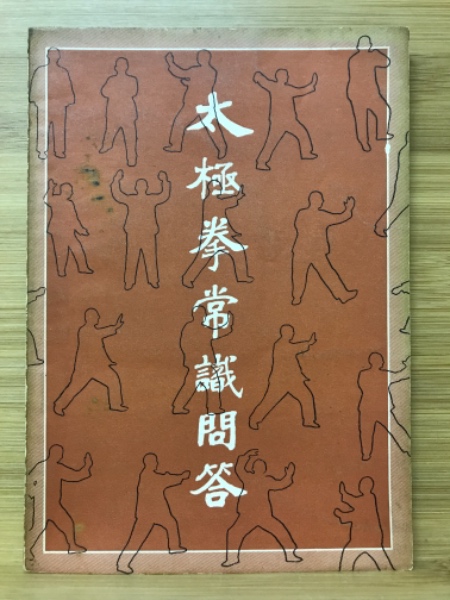 太極拳常識問答